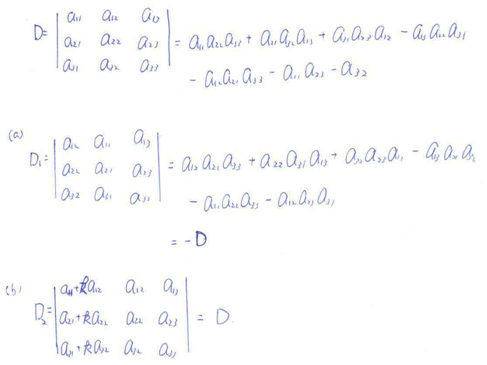 D= | a₁₁ a₁₂ a₁₃ |
| a₂₁ a₂₂ a₂₃ | = a₁₁a₂₂a₃₃ + a₂₁a₃₂a₁₃ + a₃₁a₂₃a₁₂ - a₁₃a₂₂a₃₁
| a₃₁ a₃₂ a₃₃ | - a₁₂a₂₁a₃₃ - a₁₁a₂₃ - a₃₂
(a)
D₁= | a₁₂ a₁₁ a₁₃ |
| a₂₂ a₂₁ a₂₃ | = a₁₂a₂₁a₃₃ + a₂₂a₃₁a₁₃ + a₃₂a₂₃a₁₁ - a₁₃a₂₁a₃₂
| a₃₂ a₃₁ a₃₃ | - a₁₁a₂₂a₃₃ - a₁₂a₂₃a₃₁
= -D
(b)
D₂= | a₁₁+ka₁₂ a₁₂ a₁₃ |
| a₂₁+ka₂₂ a₂₂ a₂₃ | = D.
| a₃₁+ka₃₂ a₃₂ a₃₃ |